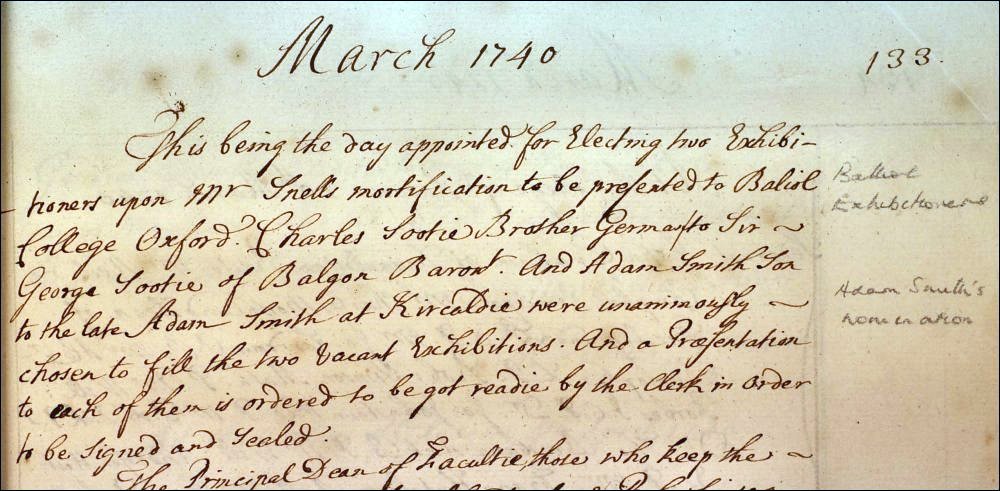 March 1740
133.
This being the day appointed for Electing two Exhibi-
tioners upon Mr Snells mortification to be presented to Baliol
College Oxford. Charles Sootie Brother German to Sir ~
George Sootie of Balgon Baront. And Adam Smith Son
to the late Adam Smith at Kircaldie were unanimously ~
chosen to fill the two vacant Exhibitions. And a Præsentation
to each of them is ordered to be got readie by the Clerk in order
to be signed and sealed.
The Principal Dean of Facultie, those who keep the ~
Balliol
Exhibitioners
Adam Smith's
nomination